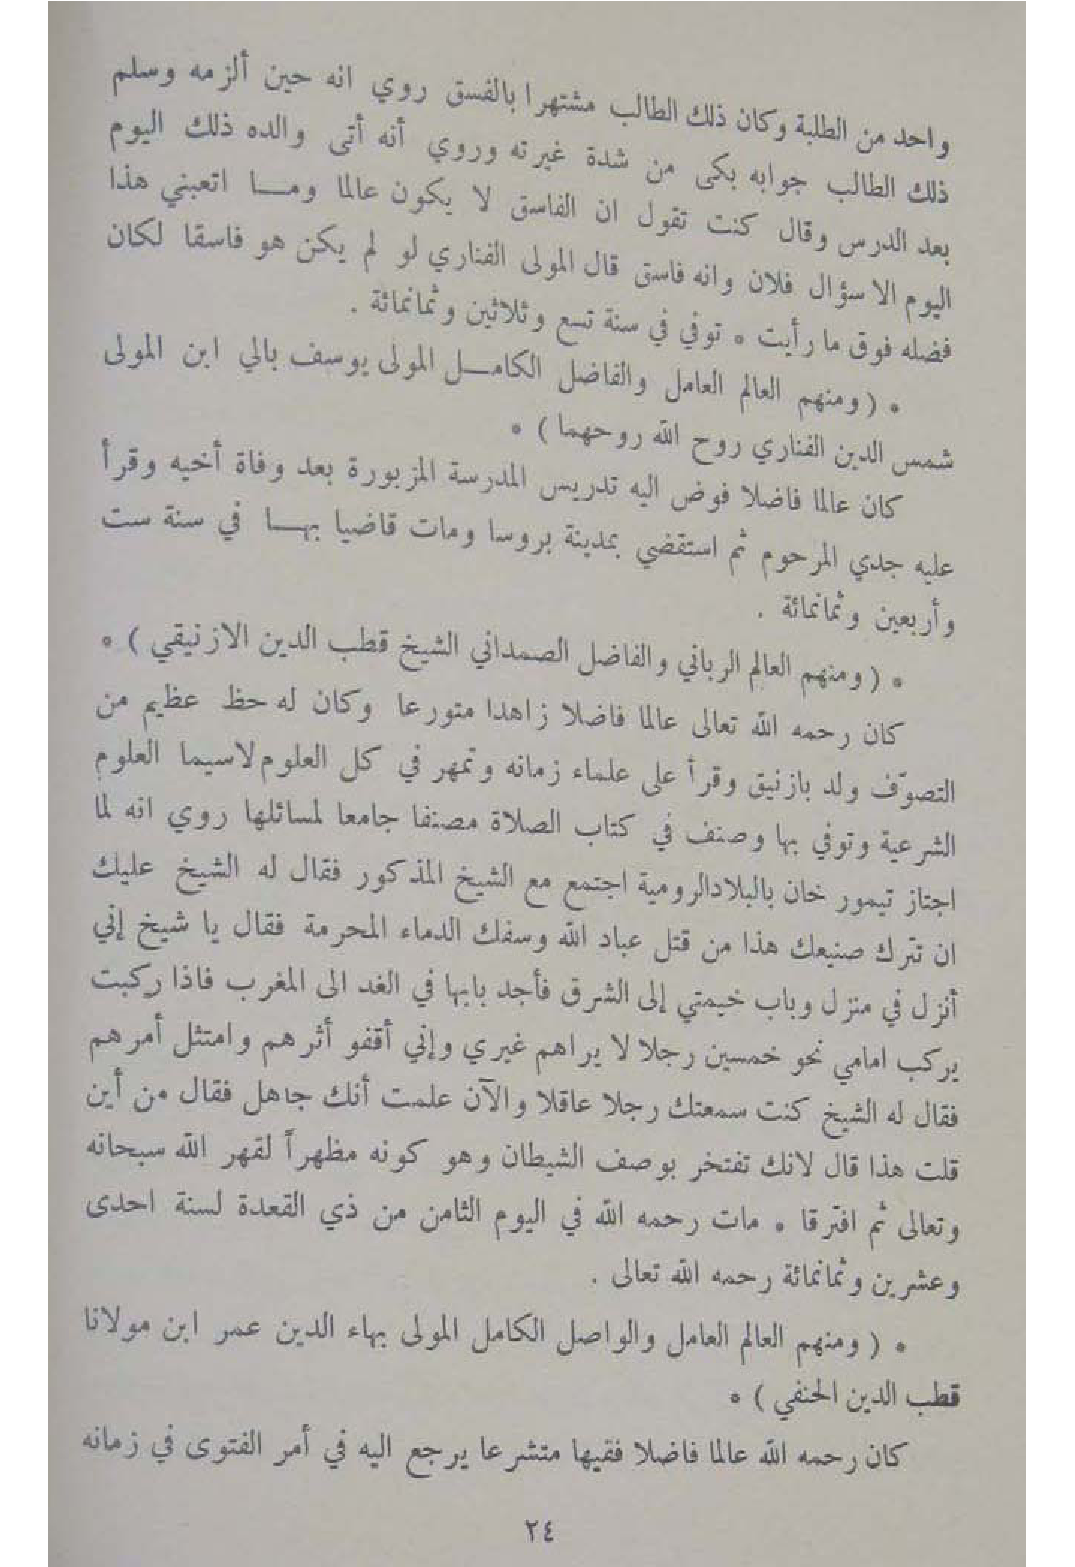 واحد من الطلبة وكان ذلك الطالب مشتهرا بالفسق روي انه حين ألزمه وسلم
ذلك الطالب جوابه بكى من شدة غيرته وروي أنه أتى والده ذلك اليوم
بعد الدرس وقال كنت تقول ان الفاسق لا يكون عالما وما اتعبني هذا
اليوم الا سؤال فلان وانه فاسق قال المولى الفناري لو لم يكن هو فاسقا لكان
فضله فوق ما رأيت * توفي في سنة تسع وثلاثين وثمانمائة .
* ( ومنهم العالم العامل والفاضل الكامل المولى يوسف بالي ابن المولى
شمس الدين الفناري روح الله روحهما ) *
كان عالما فاضلا فوض اليه تدريس المدرسة المزبورة بعد وفاة أخيه وقرأ
عليه جدي المرحوم ثم استقضي بمدينة بروسا ومات قاضيا بها في سنة ست
وأربعين وثمانمائة .
* ( ومنهم العالم الرباني والفاضل الصمداني الشيخ قطب الدين الازنيقي ) *
كان رحمه الله تعالى عالما فاضلا زاهدا متورعا وكان له حظ عظيم من
التصوّف ولد بازنيق وقرأ على علماء زمانه وتمهر في كل العلوم لاسيما العلوم
الشرعية وتوفي بها وصنف في كتاب الصلاة مصنفا جامعا لمسائلها روي انه لما
اجتاز تيمور خان بالبلاد الرومية اجتمع مع الشيخ المذكور فقال له الشيخ عليك
ان تترك صنيعك هذا من قتل عباد الله وسفك الدماء المحرمة فقال يا شيخ إني
أنزل في منزل وباب خيمتي إلى الشرق فأجد بابها في الغد الى المغرب فاذا ركبت
يركب امامي نحو خمسين رجلا لا يراهم غيري وإني أقفو أثرهم وامتثل أمرهم
فقال له الشيخ كنت سمعتك رجلا عاقلا والآن علمت أنك جاهل فقال من أين
قلت هذا قال لانك تفتخر بوصف الشيطان وهو كونه مظهراً لقهر الله سبحانه
وتعالى ثم افترقا * مات رحمه الله في اليوم الثامن من ذي القعدة لسنة احدى
وعشرين وثمانمائة رحمه الله تعالى .
* ( ومنهم العالم العامل والواصل الكامل المولى بهاء الدين عمر ابن مولانا
قطب الدين الحنفي ) *
كان رحمه الله عالما فاضلا فقيها متشرعا يرجع اليه في أمر الفتوى في زمانه
٢٤